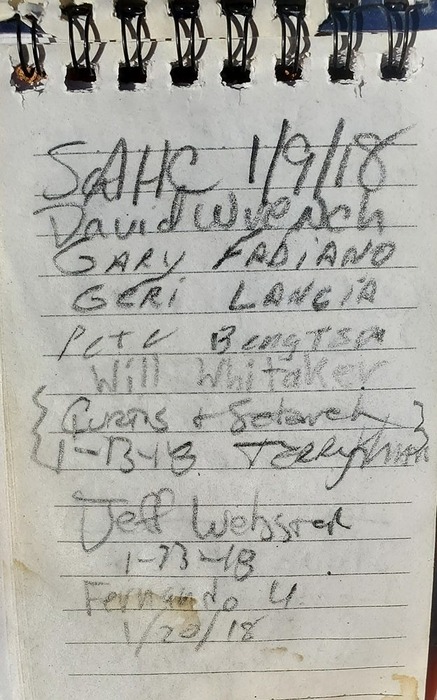 SAHC 1/9/18
David Wuench
GARY FABIANO
GERI LANGIA
Pete Bengtson
Will Whitaker
Curtis +
1-13-18 TERRY
Jeff Webster
1-13-18
Fernando U
1/20/18